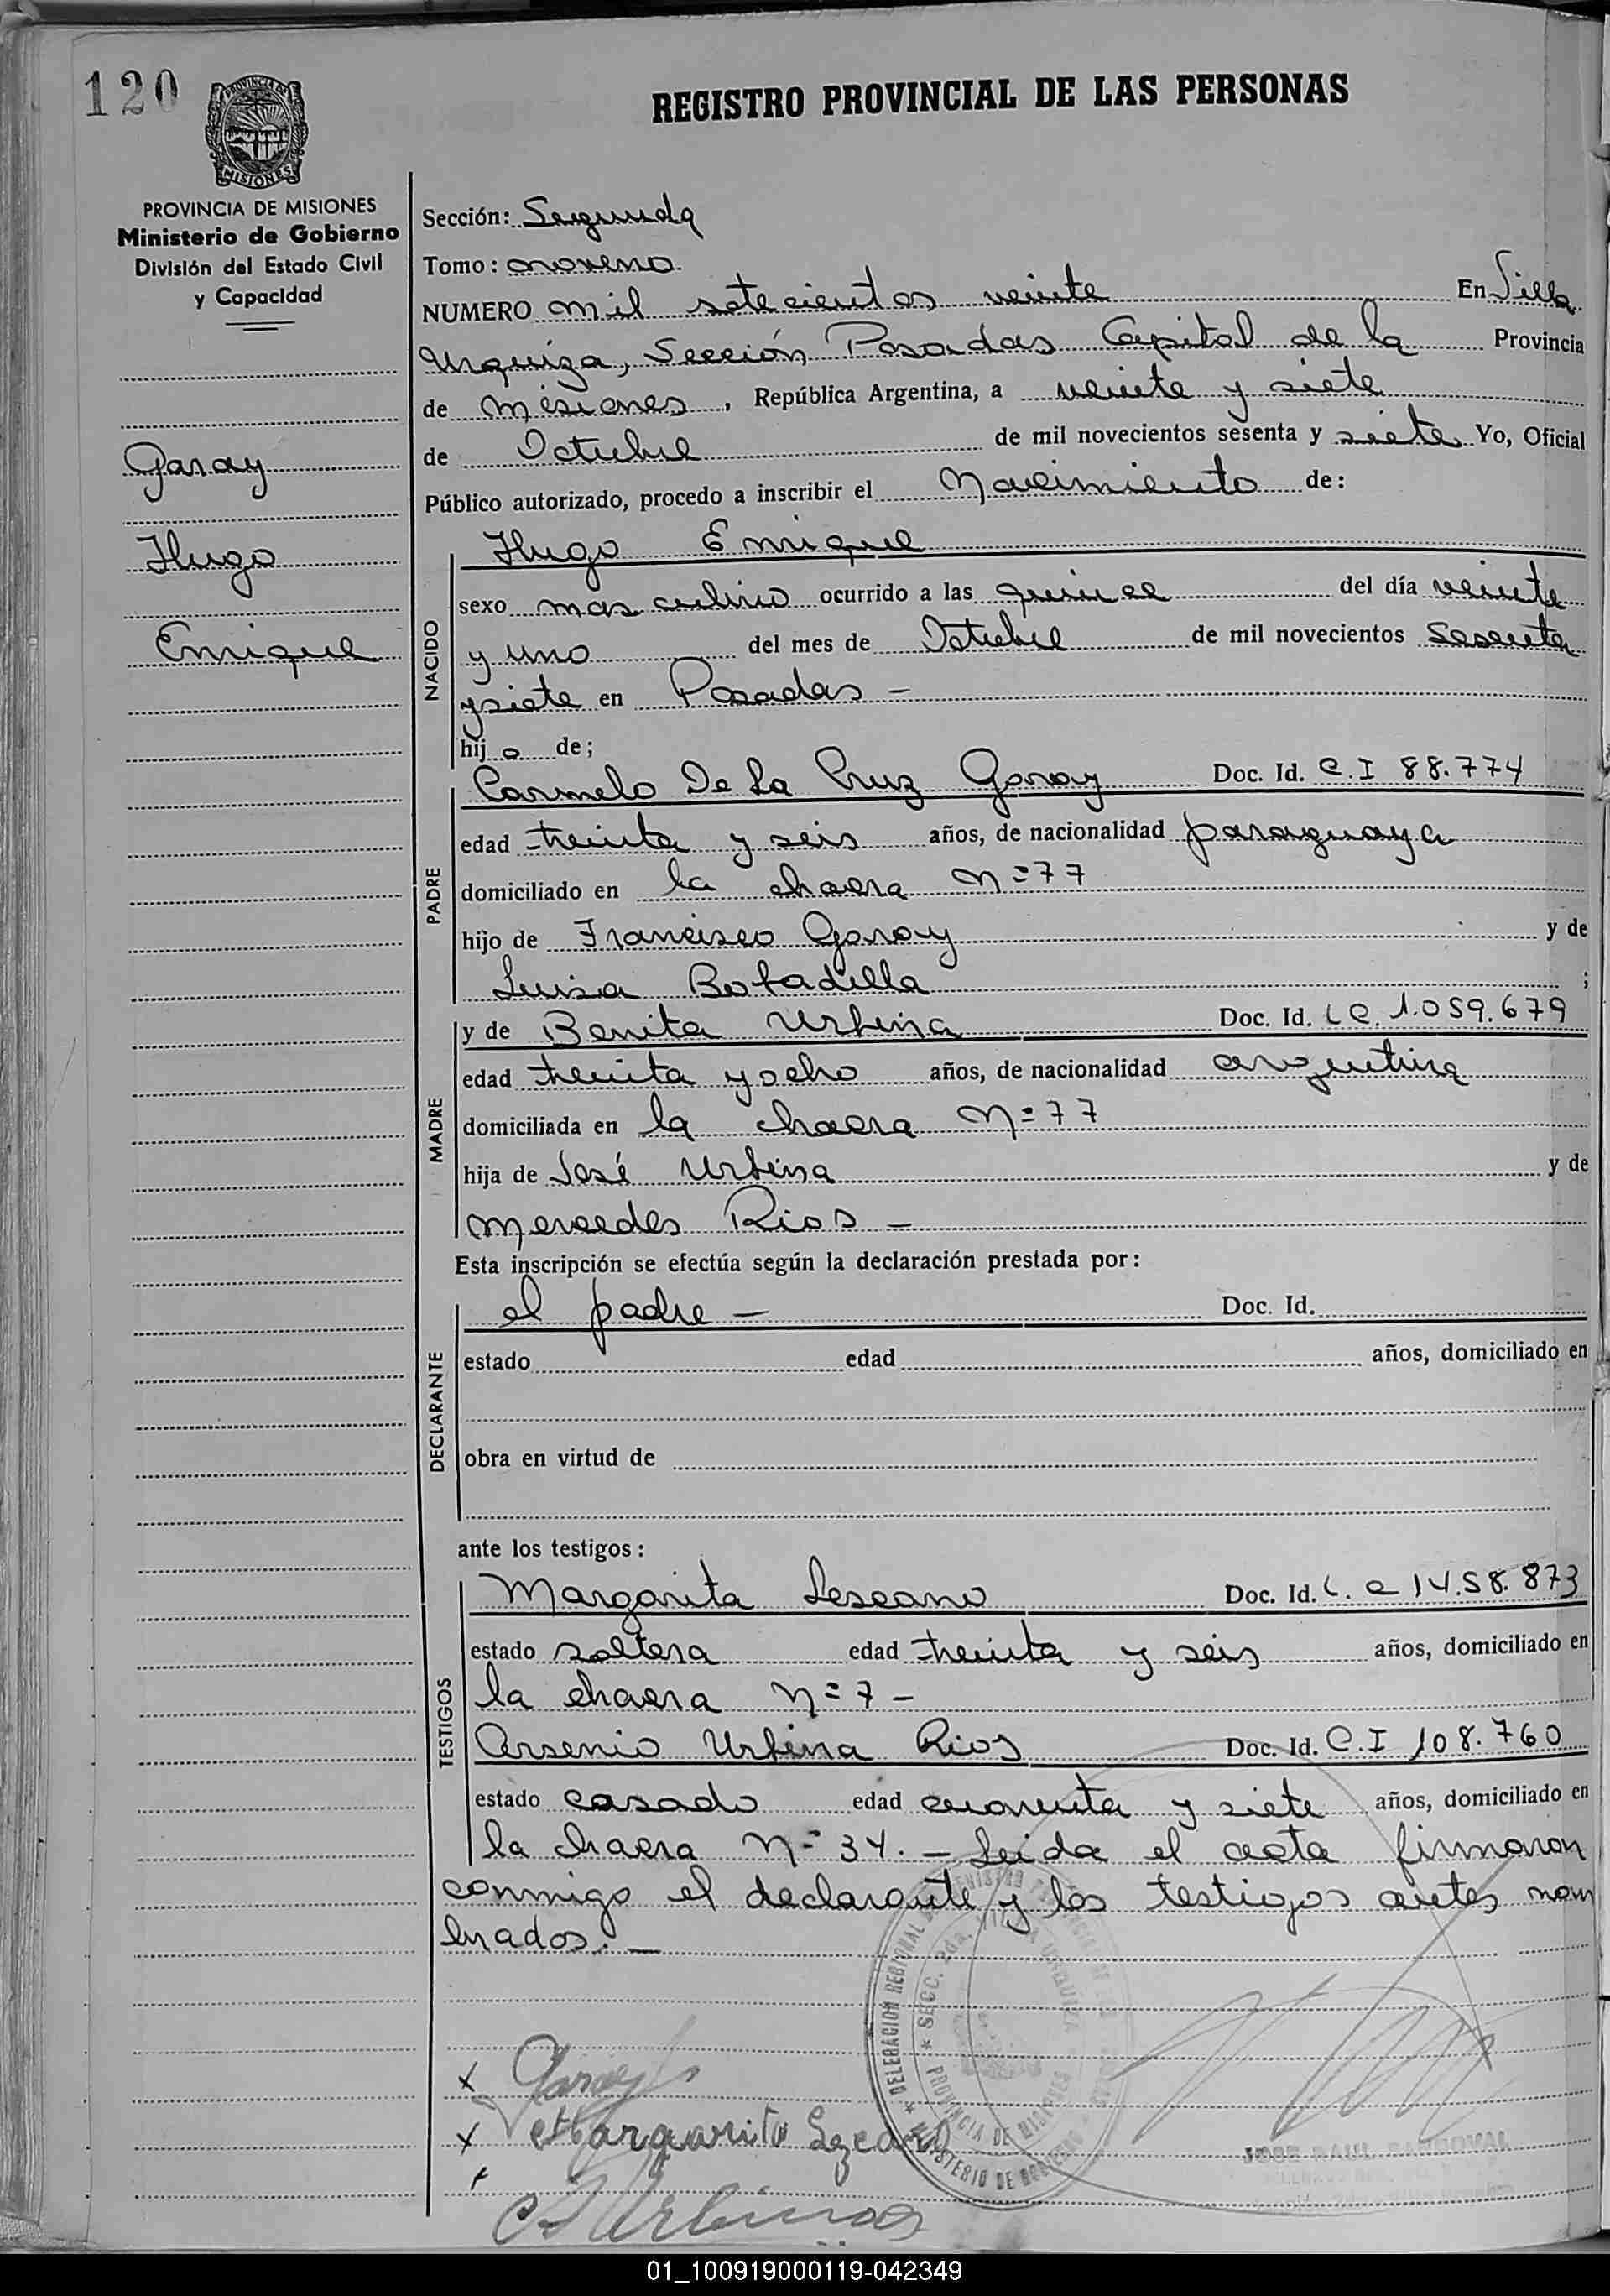 120
PROVINCIA DE
MISIONES
REGISTRO PROVINCIAL DE LAS PERSONAS
PROVINCIA DE MISIONES
Ministerio de Gobierno
División del Estado Civil
y Capacidad
Garay
Hugo
Enrique
Sección: Segunda
Tomo: noveno.
NUMERO mil setecientos veinte En Villa
Urquiza, Sección Posadas Capital de la Provincia
de Misiones, República Argentina, a veinte y siete
de Octubre de mil novecientos sesenta y siete Yo, Oficial
Público autorizado, procedo a inscribir el Nacimiento de:
NACIDO
Hugo Enrique
sexo masculino ocurrido a las quince del día veinte
y uno del mes de Octubre de mil novecientos sesenta
y siete en Posadas -
hijo de;
PADRE
Carmelo De La Cruz Garay Doc. Id. C.I 88.774
edad treinta y seis años, de nacionalidad paraguaya
domiciliado en la chacra Nº 77
hijo de Francisco Garay y de
Luisa Bobadilla ;
MADRE
y de Benita Urbina Doc. Id. LC. 1.059.679
edad treinta y ocho años, de nacionalidad argentina
domiciliada en la chacra Nº 77
hija de José Urbina y de
Mercedes Rios -
Esta inscripción se efectúa según la declaración prestada por:
DECLARANTE
el padre - Doc. Id.
estado edad años, domiciliado en
obra en virtud de
ante los testigos:
TESTIGOS
Margarita Lescano Doc. Id. L.C 14.58.873
estado soltera edad treinta y seis años, domiciliado en
la chacra Nº 7 -
Arsenio Urbina Rios Doc. Id. C.I 108.760
estado casado edad cuarenta y siete años, domiciliado en
la chacra Nº 34. - Leida el acta firmaron
conmigo el declarante y los testigos antes nom
brados. -
DELEGACION REGIONAL
SECC. 2da. VILLA URQUIZA
PROVINCIA DE MISIONES
MINISTERIO DE GOBIERNO
x Garay
x Margarita
A Urbina
JOSE RAUL SANDOVAL
01_100919000119-042349